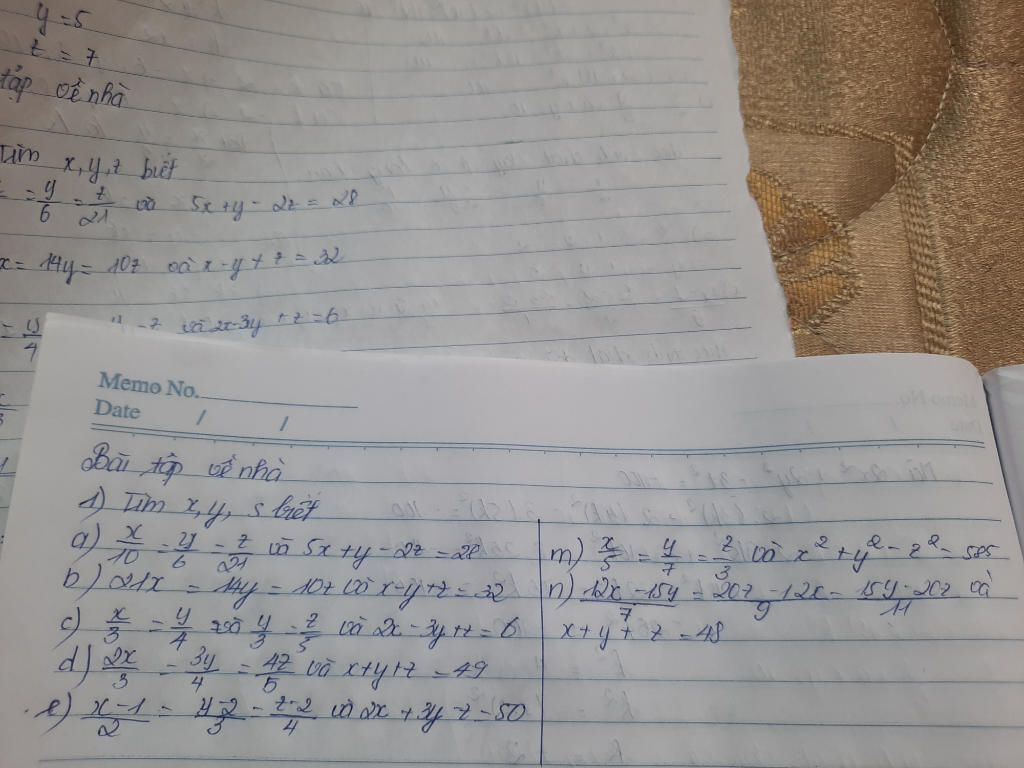 y = 5
z = 7
tập về nhà
Tìm x, y, z biết
= y/6 = z/21 và 5x + y - 2z = 28
x = 14y = 10z và x - y + z = 32
= y/4 và 2x - 3y + z = 6
Memo No.
Date / /
Bài tập về nhà
1) Tìm x, y, s biết
a) x/10 = y/6 = z/21 và 5x + y - 2z = 28
b) 21x = 14y = 10z và x - y + z = 32
c) x/3 = y/4 và y/3 = z/5 và 2x - 3y + z = 6
d) 2x/3 = 3y/4 = 4z/5 và x + y + z = 49
e) x - 1/2 = y - 2/3 = z - 2/4 và 2x + 3y - z = 50
m) x/5 = y/7 = z/3 và x² + y² - z² = 585
n) 12x - 15y/7 = 20z - 12x/9 = 15y - 20z/11 và
x + y + z = 48